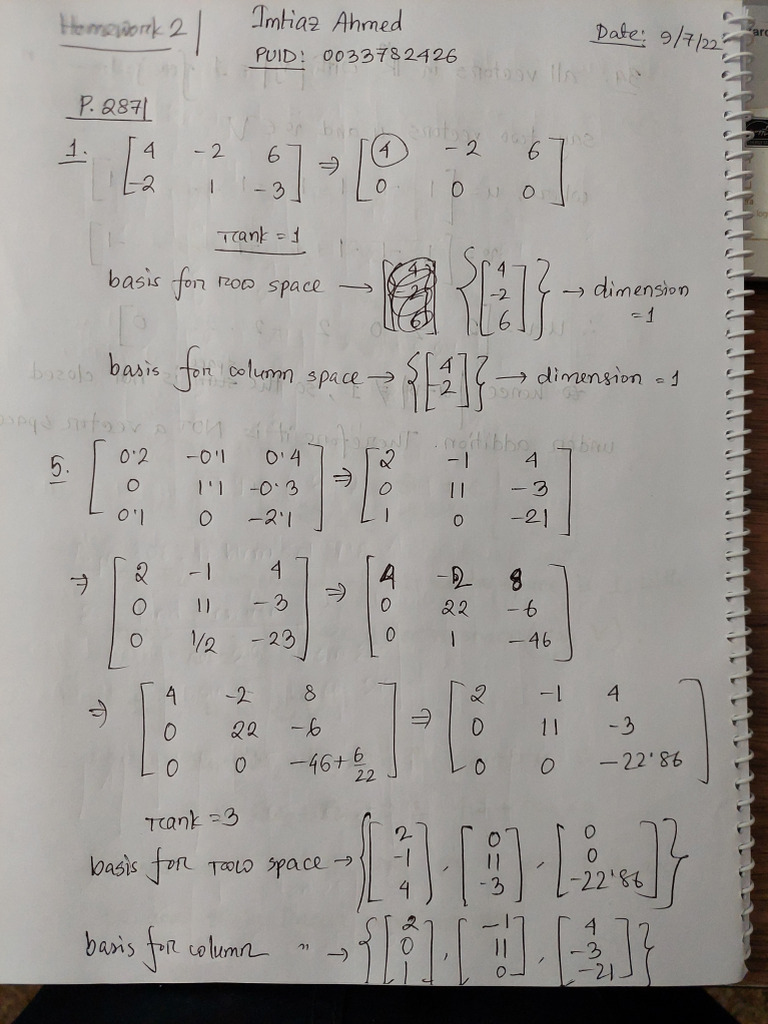 Homework 2
Imtiaz Ahmed
PUID: 0033782426
Date: 9/7/22
P. 287
1. [4 -2 6; -2 1 -3] ⇒ [4 -2 6; 0 0 0]
rank = 1
basis for row space → {[4; -2; 6]} → dimension = 1
basis for column space → {[4; -2]} → dimension = 1
5. [0.2 -0.1 0.4; 0 1.1 -0.3; 0.1 0 -2.1] ⇒ [2 -1 4; 0 11 -3; 1 0 -21]
⇒ [2 -1 4; 0 11 -3; 0 1/2 -23] ⇒ [4 -2 8; 0 22 -6; 0 1 -46]
⇒ [4 -2 8; 0 22 -6; 0 0 -46+6/22] ⇒ [2 -1 4; 0 11 -3; 0 0 -22.86]
rank = 3
basis for row space → {[2; -1; 4], [0; 11; -3], [0; 0; -22.86]}
basis for column " → {[2; 0; 1], [-1; 11; 0], [4; -3; -21]}